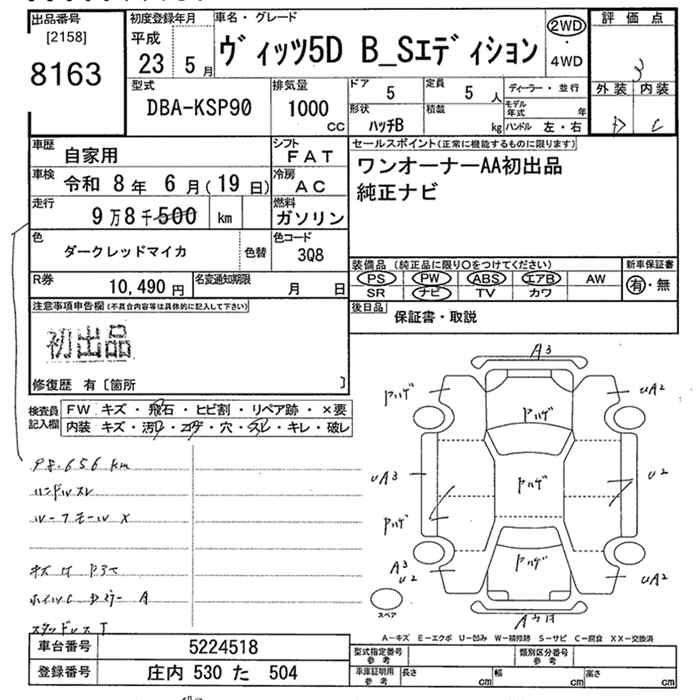 出品番号
[2158]
8163
初度登録年月
平成
23 5 月
車名・グレード
ヴィッツ5D B_Sエディション
2WD
・
4WD
評価点
3
外装 内装
D C
型式
DBA-KSP90
排気量
1000
CC
ドア
5
定員
5 人
形状
ハッチB
積載
kg
ディーラー・並行
モデル年式 年
ハンドル 左・右
車歴
自家用
シフト
FAT
車検
令和 8 年 6 月(19 日)
冷房
AC
走行
9 万 8 千 500 km
燃料
ガソリン
色
ダークレッドマイカ
色替
色コード
3Q8
R券
10,490 円
名変通知期限
月 日
セールスポイント(正常に機能するものに限ります)
ワンオーナーAA初出品
純正ナビ
装備品(純正品に限り○をつけてください)
PS PW ABS エアB AW
SR ナビ TV カワ
新車保証書
有・無
後日品
保証書・取説
注意事項申告欄(不具合内容等は具体的に記入して下さい)
初出品
修復歴 有〔箇所 〕
検査員記入欄
FW キズ・飛石・ヒビ割・リペア跡・×要
内装 キズ・汚レ・コゲ・穴・スレ・キレ・破レ
98.656 km
ハンドルスレ
ルーフモール X
ホイルC A
スタッドレス T
A3
UA2
ドハゲ
ドハゲ
UA3
ドハゲ
U2
ドハゲ
A3
U2
ドハゲ
UA2
スペア
A-キズ E-エクボ U-凹み W-補修跡 S-サビ C-腐食 XX-交換済
車台番号
5224518
登録番号
庄内 530 た 504
型式指定番号
参考
類別区分番号
参考
車庫証明用
参考
長さ cm
幅 cm
高さ cm